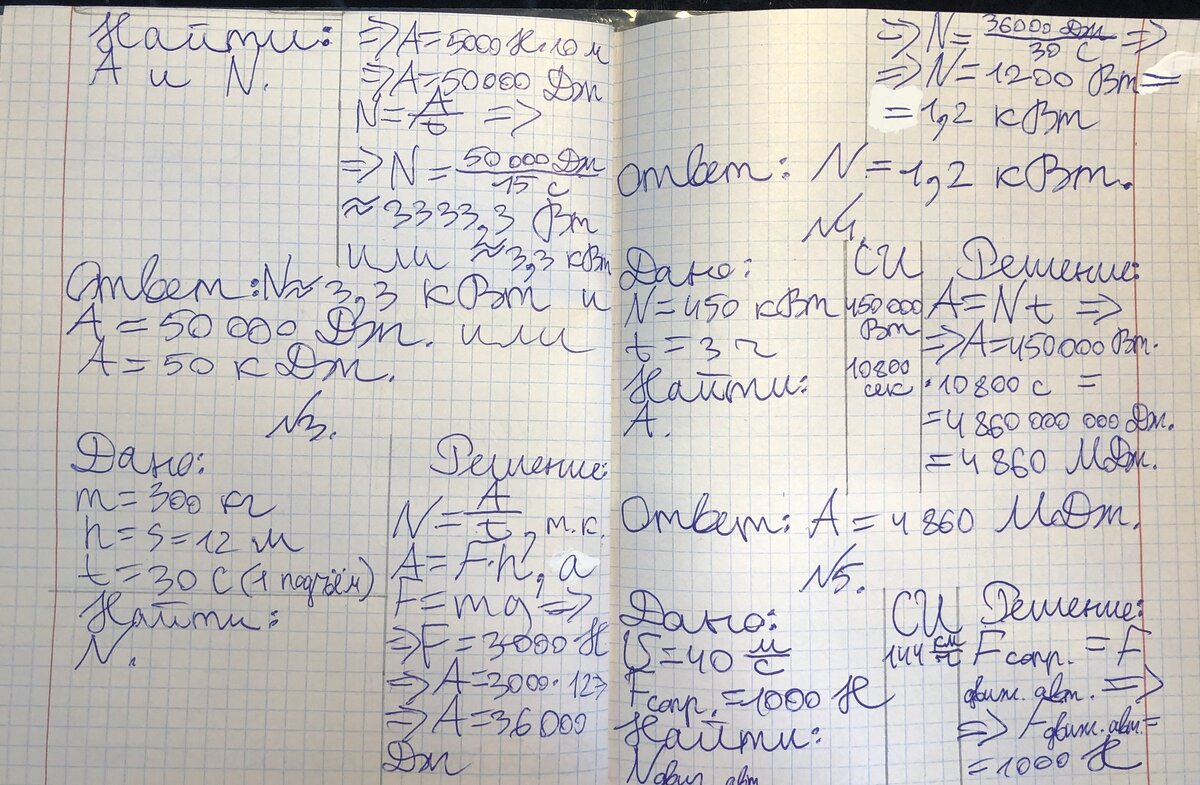 Найти:
А и N.
=> A = 5000 Н·10 м
=> A = 50000 Дж
N = A/t =>
=> N = 50 000 Дж / 15 с
≈ 3333,3 Вт
или ≈ 3,3 кВт
Ответ: N ≈ 3,3 кВт и
A = 50 000 Дж. или
A = 50 кДж.
№3.
Дано:
m = 300 кг
h = S = 12 м
t = 30 с (1 подъём)
Найти:
N.
Решение:
N = A/t, т.к.
A = F·h, а
F = mg =>
=> F = 3000 Н
=> A = 3000·12 =>
=> A = 36000
Дж
=> N = 36000 Дж / 30 с =>
=> N = 1200 Вт =
= 1,2 кВт
Ответ: N = 1,2 кВт.
№4.
Дано:
N = 450 кВт
t = 3 ч
Найти:
A.
СИ
450000
Вт
10800
сек
Решение:
A = Nt =>
=> A = 450000 Вт·
·10800 с =
= 4 860 000 000 Дж.
= 4 860 МДж.
Ответ: A = 4 860 МДж.
№5.
Дано:
v = 40 м/с
Fсопр. = 1000 Н
Найти:
Nдвиг. авт.
СИ
144 км/ч
Решение:
Fсопр. = F
движ. авт. =>
=> Fдвиж. авт. =
= 1000 Н